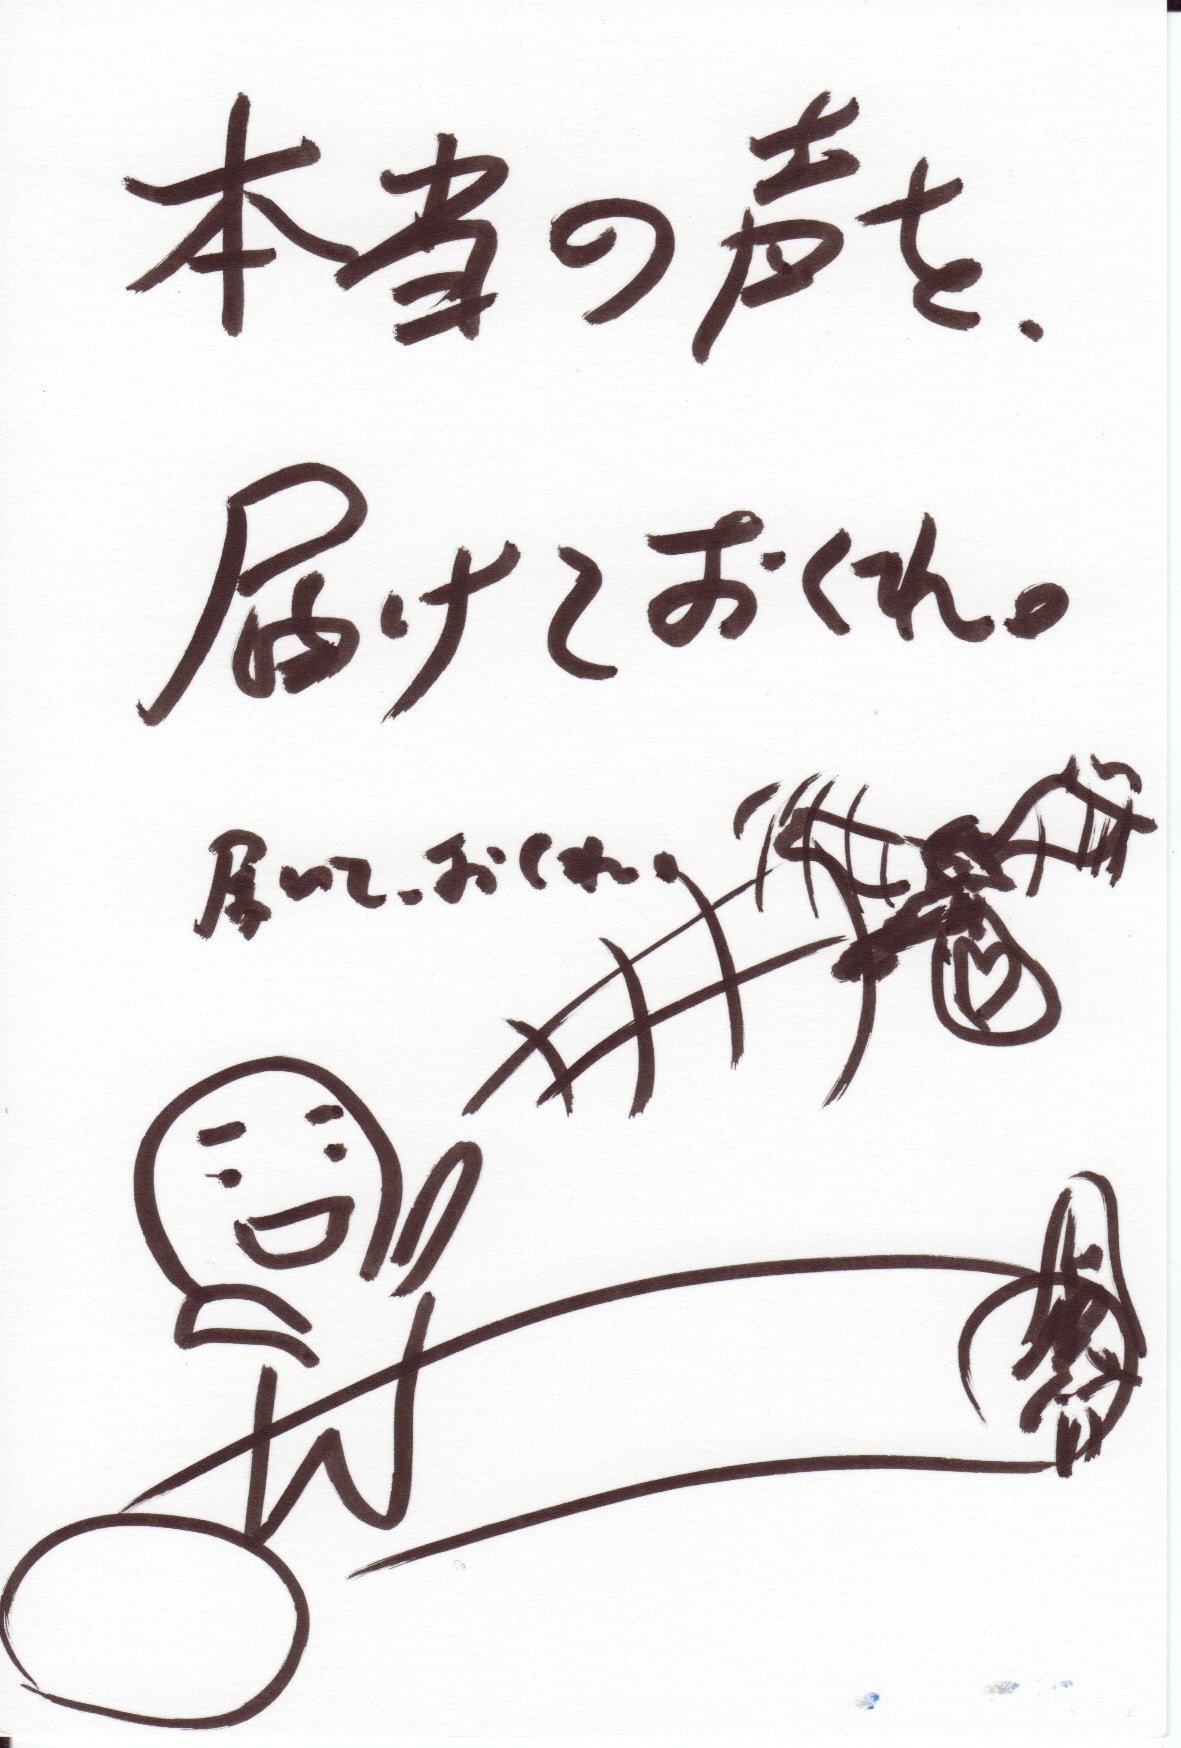 本当の声を、
届けておくれ。
届いて、おくれ。